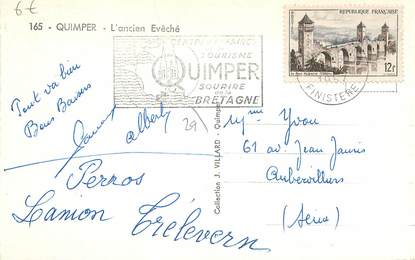 6€
165 - QUIMPER - L'ancien Evêché
CENTRE D'AFFAIRES
TOURISME
QUIMPER
SOURIRE
de la
BRETAGNE
REPUBLIQUE FRANÇAISE
12f
FINISTERE
Tout va bien
Bons Baisers
Albert
29
Perros
Lanion Trélevern
Collection J. VILLARD - Quimper
Mme Yvon
61 av Jean Jaurès
Aubervilliers
(Seine)